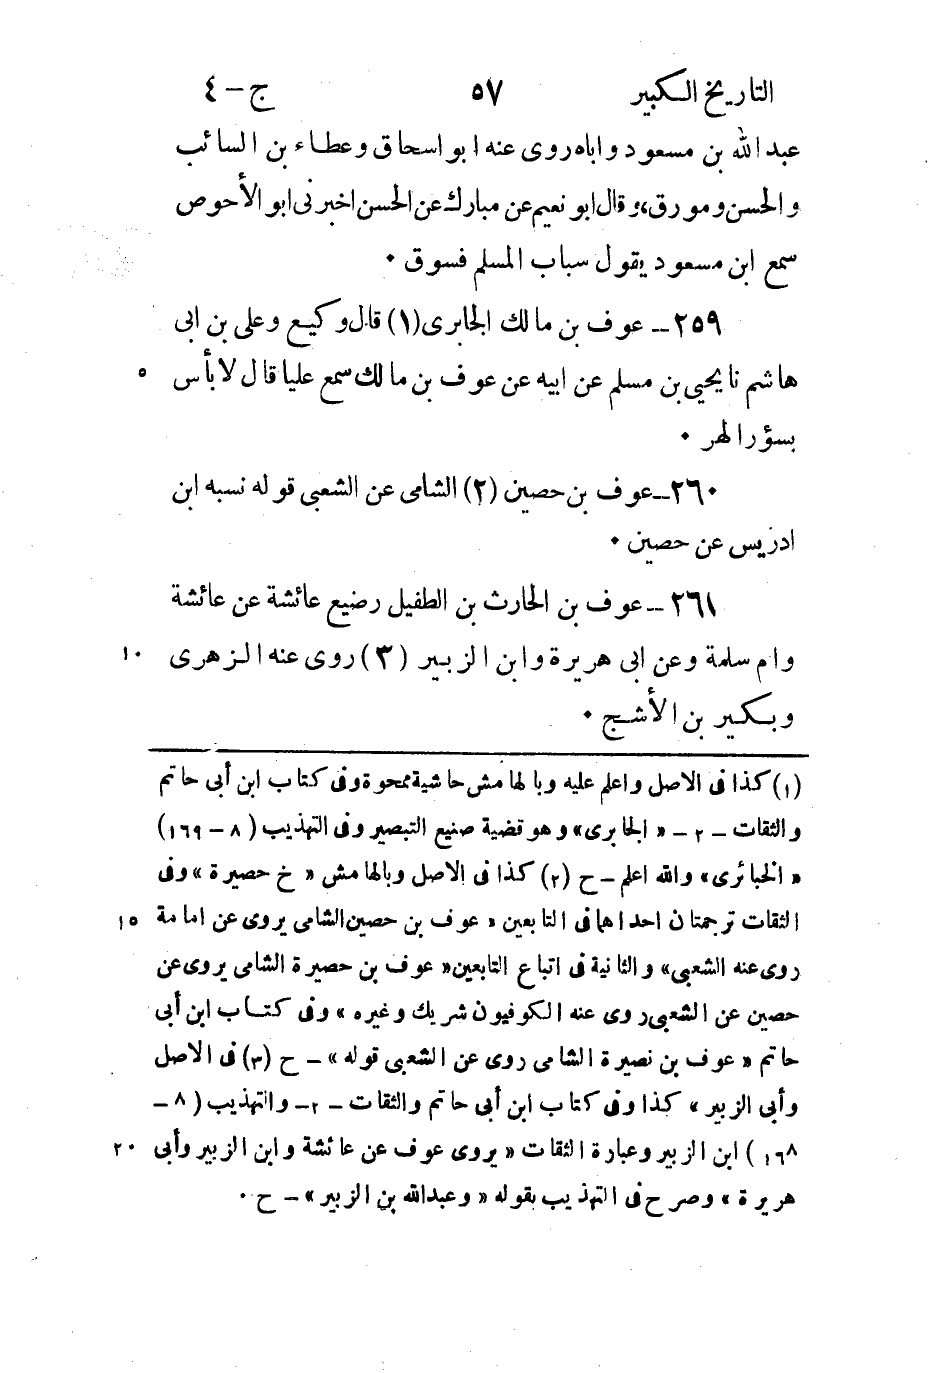 التاريخ الكبير ٥٧ ج – ٤
عبد الله بن مسعود واباه روى عنه ابو اسحاق وعطاء بن السائب
والحسن ومورق، وقال ابو نعيم عن مبارك عن الحسن اخبرنى ابو الأحوص
سمع ابن مسعود يقول سباب المسلم فسوق ٠
٢٥٩ ــ عوف بن مالك الجابرى (١) قال وكيع وعلى بن ابى
هاشم نا يحيى بن مسلم عن ابيه عن عوف بن مالك سمع عليا قال لا بأس ٥
بسؤر الهر ٠
٢٦٠ ــ عوف بن حصين (٢) الشامى عن الشعبى قوله نسبه ابن
ادريس عن حصين ٠
٢٦١ ــ عوف بن الحارث بن الطفيل رضيع عائشة عن عائشة
وام سلمة وعن ابى هريرة وابن الزبير (٣) روى عنه الزهرى ١٠
وبكير بن الأشج ٠
(١) كذا فى الاصل واعلم عليه وبالهامش حاشية ممحوة وفى كتاب ابن أبى حاتم
والثقات ــ ٢ ــ « الجابرى» وهو قضية صنيع التبصير وفى التهذيب (٨ – ١٦٩)
« الخبائرى» والله اعلم ــ ح (٢) كذا فى الاصل وبالهامش « خ حصيرة » وفى
الثقات ترجمتان احداهما فى التابعين « عوف بن حصين الشامى يروى عن امامة ١٥
روى عنه الشعبى» والثانية فى اتباع التابعين« عوف بن حصيرة الشامى يروى عن
حصين عن الشعبى روى عنه الكوفيون شريك وغيره » وفى كتاب ابن أبى
حاتم « عوف بن نصيرة الشامى روى عن الشعبى قوله » ــ ح (٣) فى الاصل
وأبى الزبير » كذا وفى كتاب ابن أبى حاتم والثقات ــ ٢ ــ والتهذيب (٨ ــ
١٦٨) ابن الزبير وعبارة الثقات « يروى عوف عن عائشة وابن الزبير وأبى ٢٠
هريرة » وصرح فى التهذيب بقوله « وعبدالله بن الزبير » ــ ح ٠